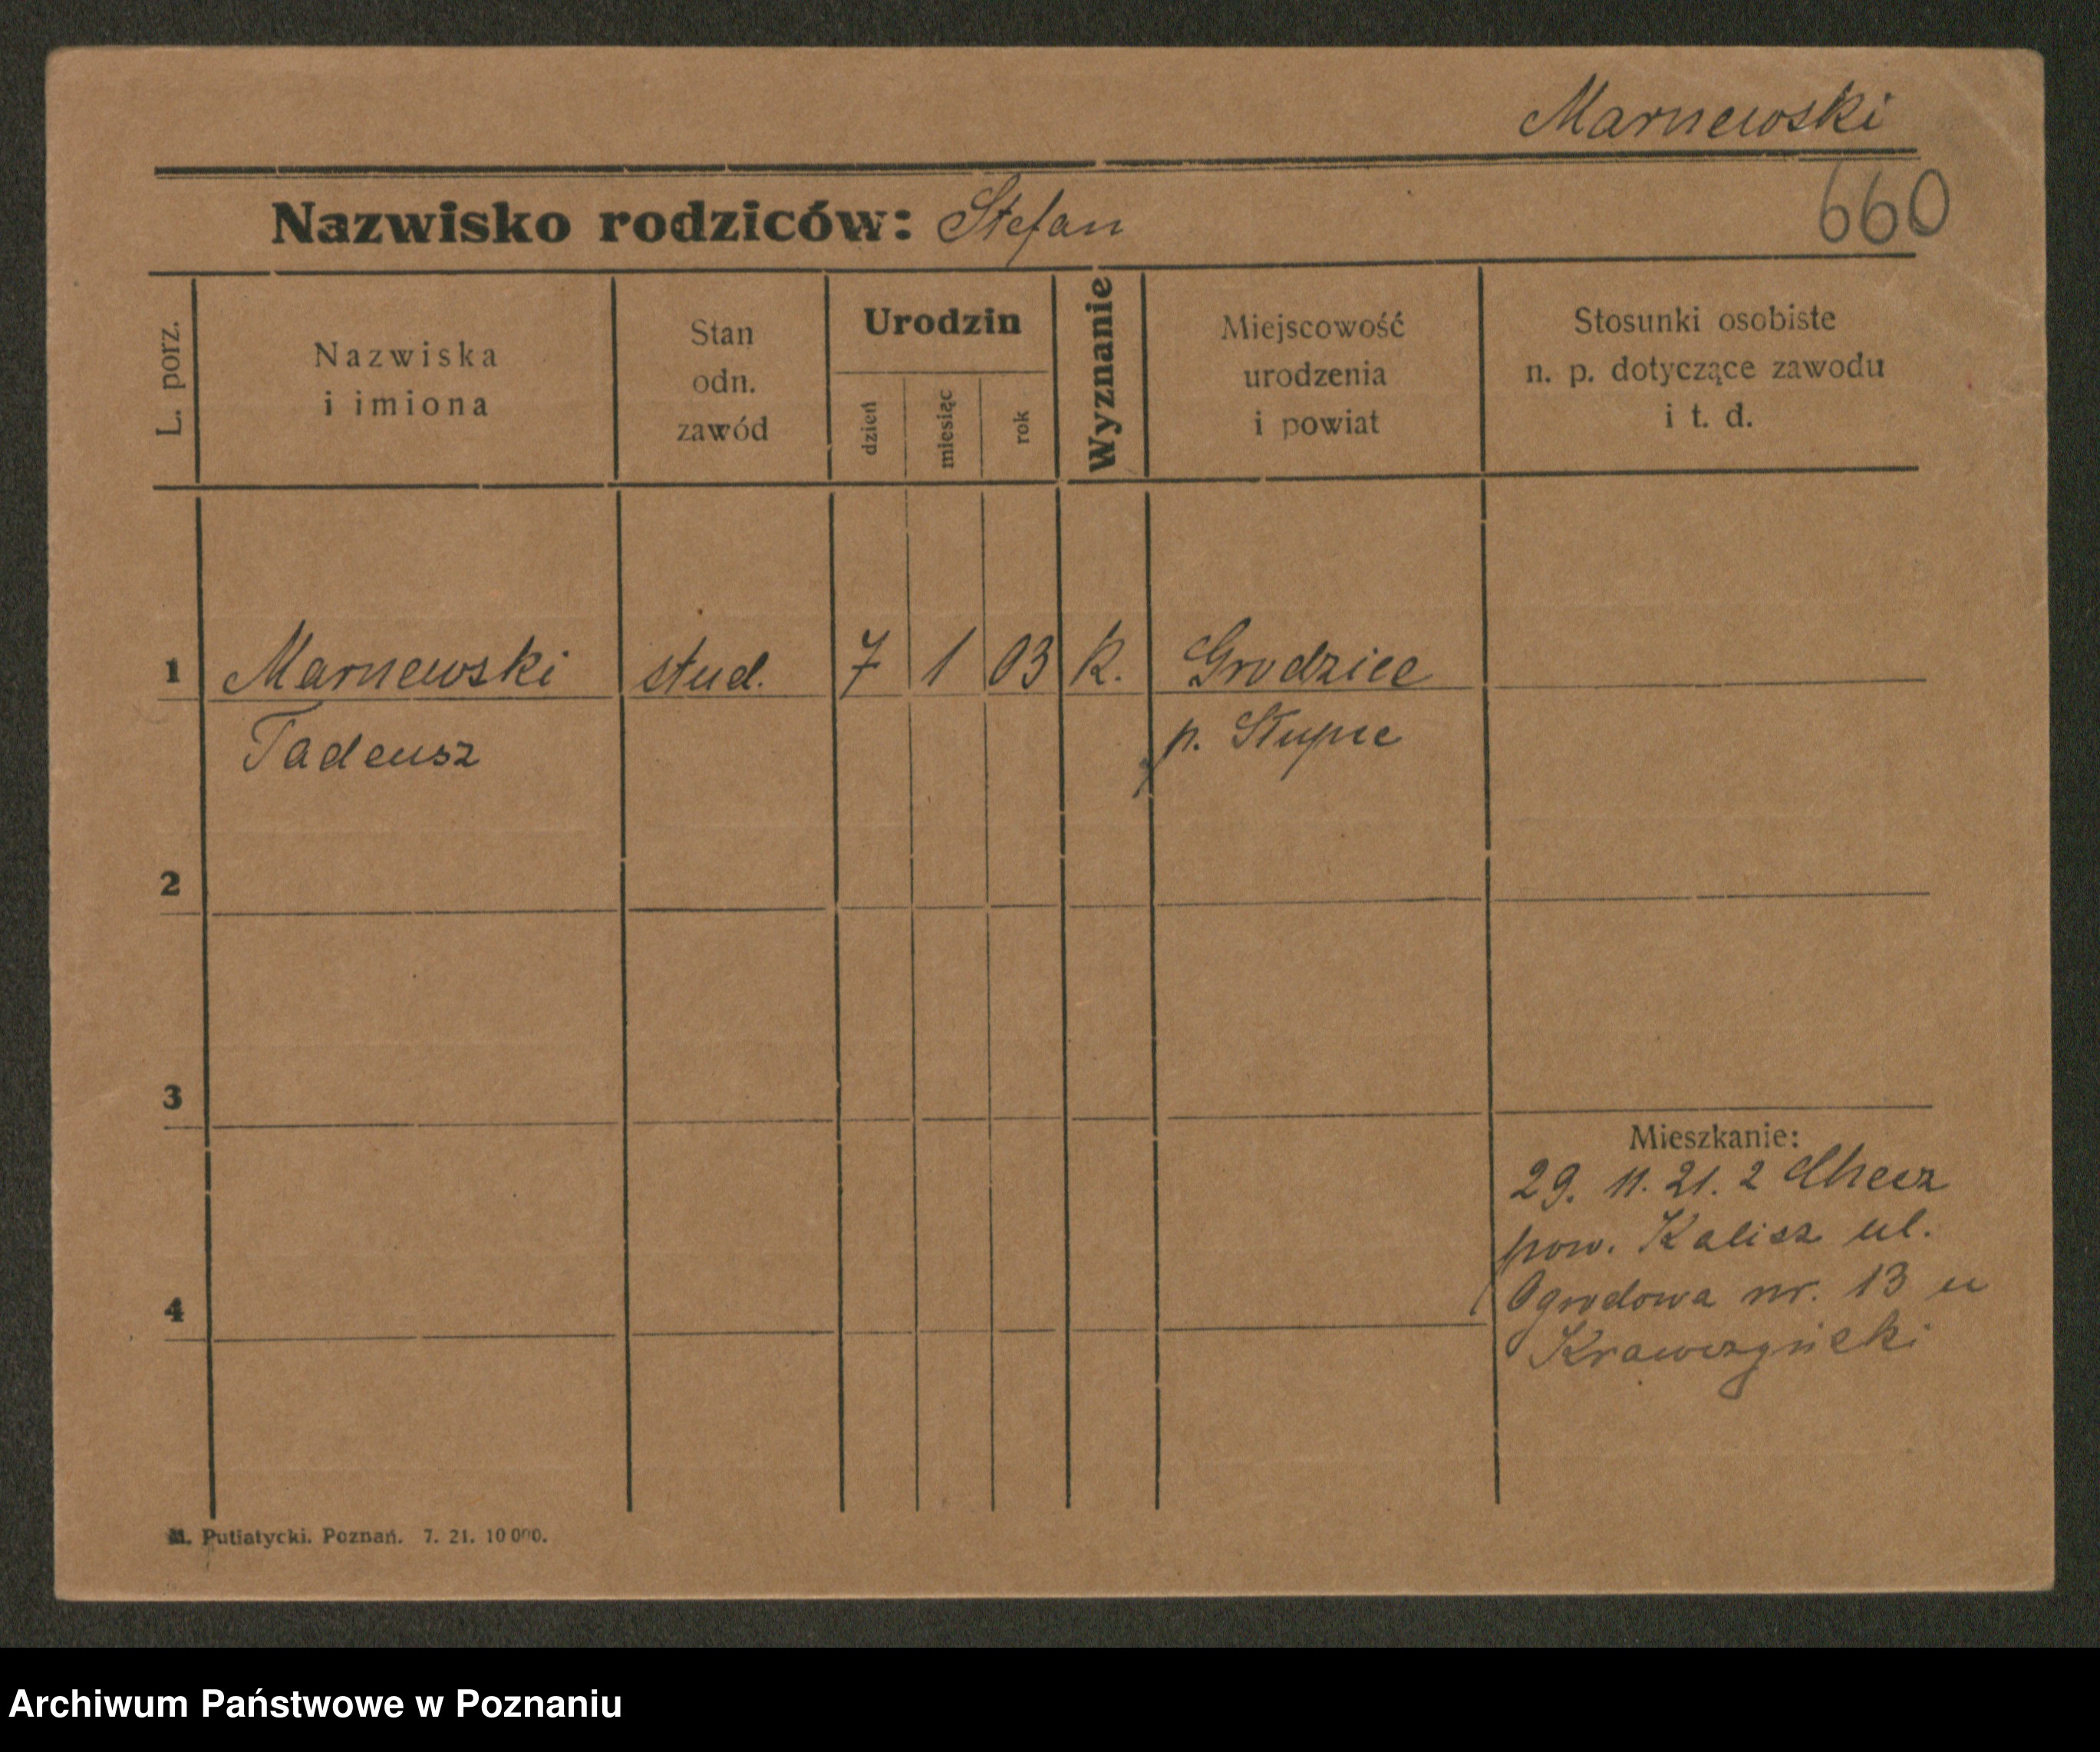 Marnewski
Nazwisko rodziców: Stefan
660
L. porz.
Nazwiska
i imiona
Stan
odn.
zawód
Urodzin
dzień
miesiąc
rok
Wyznanie
Miejscowość
urodzenia
i powiat
Stosunki osobiste
n. p. dotyczące zawodu
i t. d.
1 Marnewski stud. 7 1 03 k. Grodziec
Tadeusz p. Słupce
2
3
Mieszkanie:
29. 11. 21. z
pow. Kalisz ul.
Ogrodowa nr. 13 u
4
Krawczyński
M. Putiatycki. Poznań. 7. 21. 10 000.
Archiwum Państwowe w Poznaniu